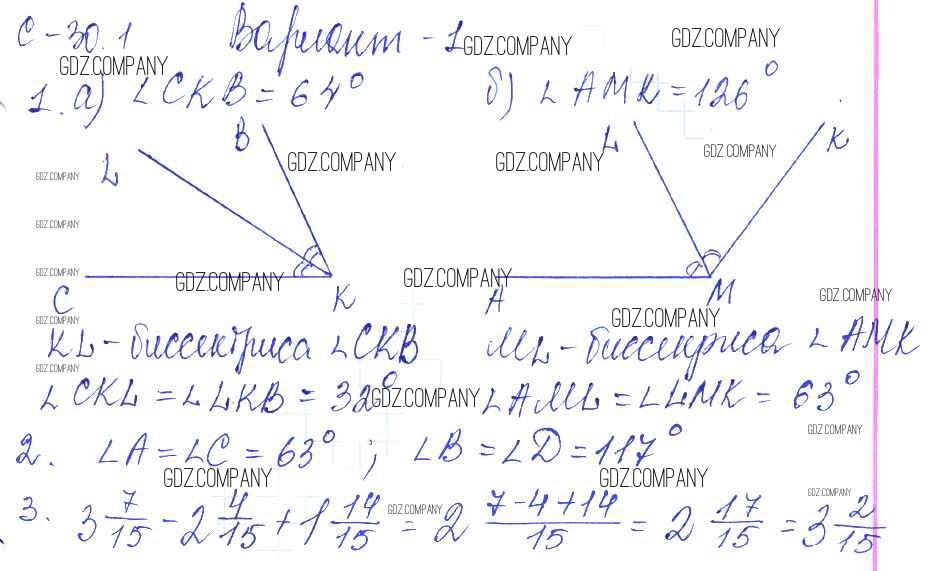 С-30.1 Вариант-1
GDZ.COMPANY GDZ.COMPANY
GDZ.COMPANY
1. а) ∠CKB = 64° б) ∠AMK = 126°
B L K
L GDZ.COMPANY GDZ.COMPANY GDZ.COMPANY
GDZ.COMPANY
GDZ.COMPANY
GDZ.COMPANY GDZ.COMPANY GDZ.COMPANY
C K A M
GDZ.COMPANY
GDZ.COMPANY GDZ.COMPANY
KL - биссектриса ∠CKB ML - биссектриса ∠AMK
GDZ.COMPANY
∠CKL = ∠LKB = 32° ∠AML = ∠LMK = 63°
GDZ.COMPANY
2. ∠A = ∠C = 63° ; ∠B = ∠D = 117°
GDZ.COMPANY
GDZ.COMPANY GDZ.COMPANY
3. 3 7/15 - 2 4/15 + 1 14/15 = 2 (7-4+14)/15 = 2 17/15 = 3 2/15
GDZ.COMPANY GDZ.COMPANY